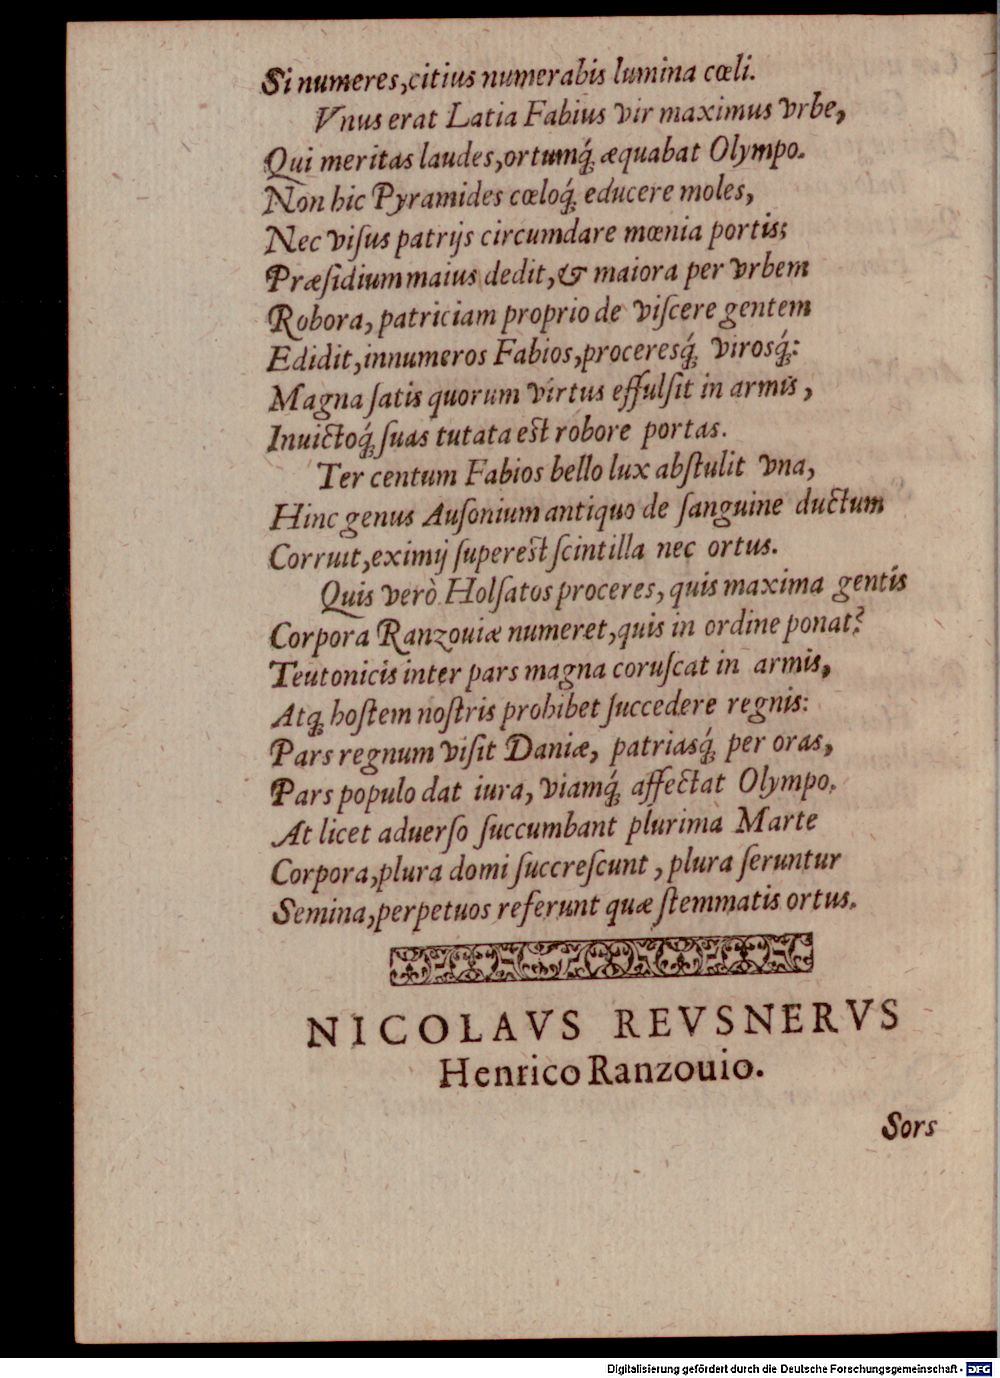 Si numeres, citius numerabis lumina cœli.
Vnus erat Latia Fabius vir maximus vrbe,
Qui meritas laudes, ortumq́; æquabat Olympo.
Non hic Pyramides cœloq́; educere moles,
Nec viſus patrijs circumdare mœnia portis;
Præſidium maius dedit, & maiora per vrbem
Robora, patriciam proprio de viſcere gentem
Edidit, innumeros Fabios, proceresq́; virosq́;:
Magna ſatis quorum virtus effulſit in armis,
Inuictoq́; ſuas tutata est robore portas.
Ter centum Fabios bello lux abſtulit vna,
Hinc genus Auſonium antiquo de ſanguine ductum
Corruit, eximij ſuperest ſcintilla nec ortus.
Quis verò Holſatos proceres, quis maxima gentis
Corpora Ranzouiæ numeret, quis in ordine ponat?
Teutonicis inter pars magna coruſcat in armis,
Atq; hoſtem noſtris prohibet ſuccedere regnis:
Pars regnum viſit Daniæ, patriasq́; per oras,
Pars populo dat iura, viamq́; affectat Olympo.
At licet aduerſo ſuccumbant plurima Marte
Corpora, plura domi ſuccreſcunt, plura ſeruntur
Semina, perpetuos referunt quæ ſtemmatis ortus.
NICOLAVS REVSNERVS
Henrico Ranzouio.
Sors
Digitalisierung gefördert durch die Deutsche Forschungsgemeinschaft - DFG